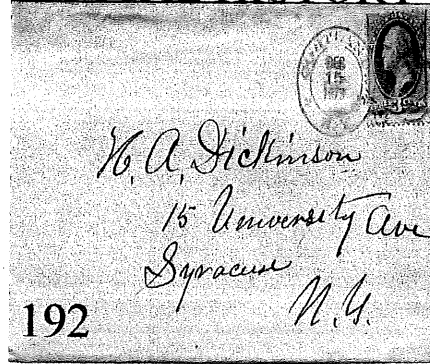 DEC
15
H. A. Dickinson
15 University Ave
Syracuse
N.Y.
192